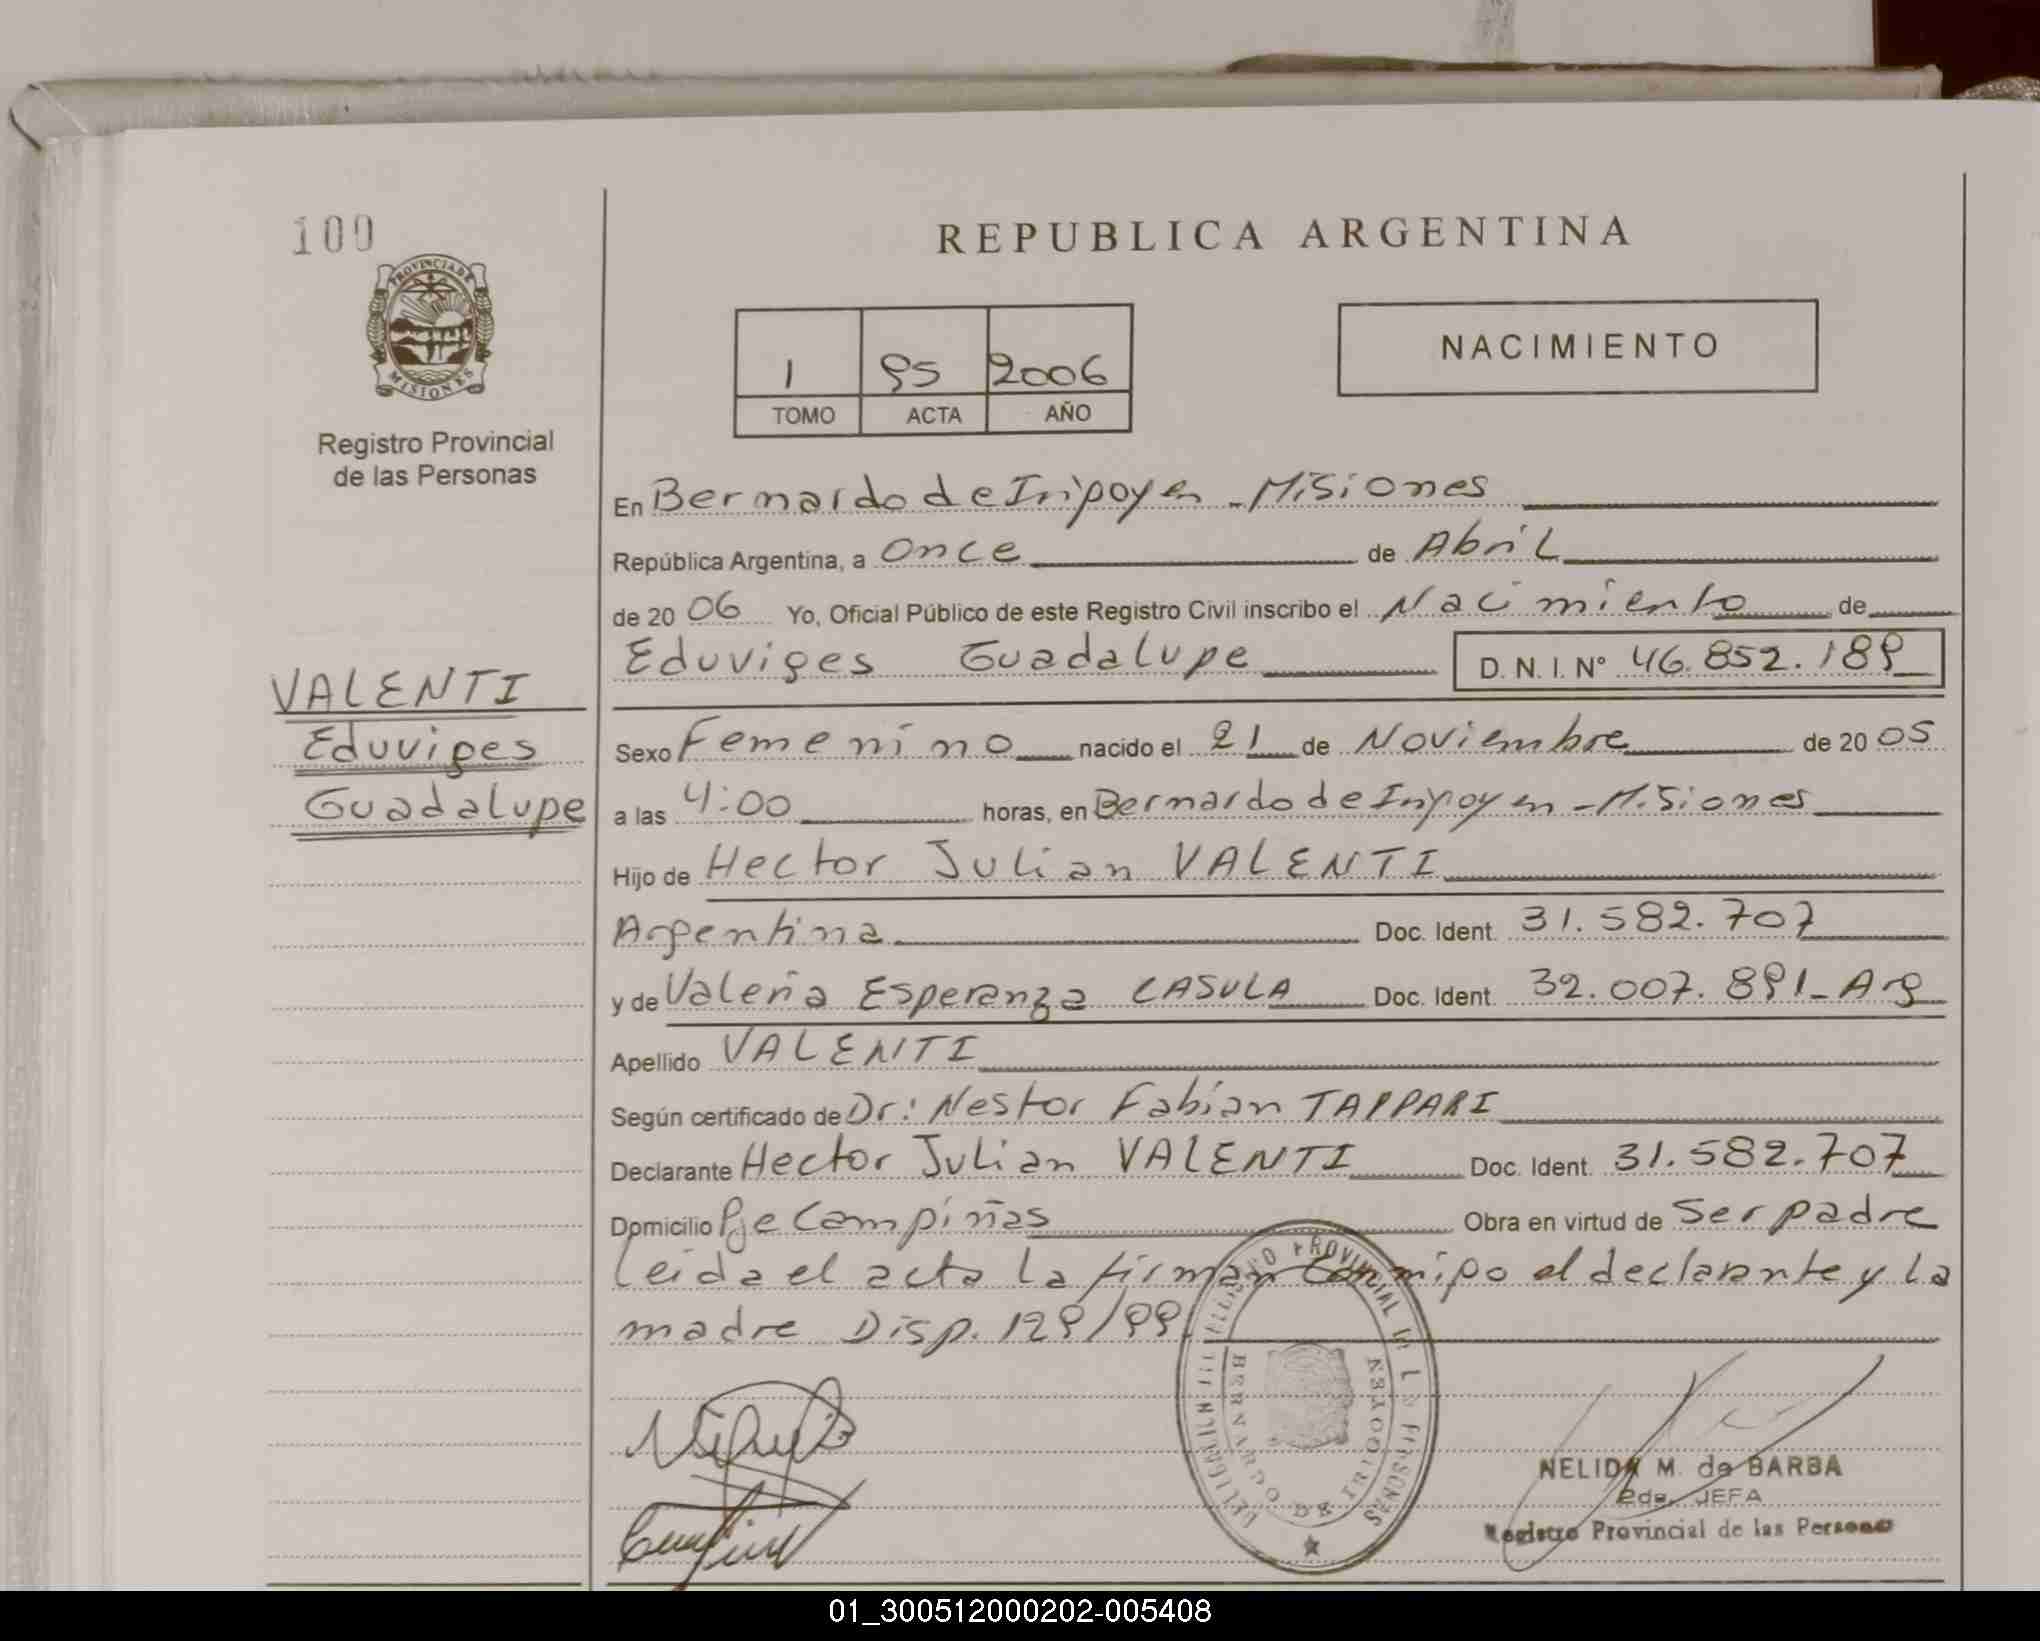 100
REPUBLICA ARGENTINA
PROVINCIA DE
MISIONES
Registro Provincial
de las Personas
1 95 2006
TOMO ACTA AÑO
NACIMIENTO
En Bernardo de Irigoyen - Misiones
República Argentina, a Once de Abril
de 20 06 Yo, Oficial Público de este Registro Civil inscribo el Nacimiento de
Eduviges Guadalupe D. N. I. Nº 46.852.189
VALENTI
Eduviges
Guadalupe
Sexo Femenino nacido el 21 de Noviembre de 20 05
a las 4:00 horas, en Bernardo de Irigoyen - Misiones
Hijo de Hector Julian VALENTI
Argentina Doc. Ident. 31.582.707
y de Valeria Esperanza CASULA Doc. Ident. 32.007.891- Arg
Apellido VALENTI
Según certificado de Dr: Nestor Fabian TAPPARI
Declarante Hector Julian VALENTI Doc. Ident. 31.582.707
Domicilio Pje Campiñas Obra en virtud de Ser padre
leida el acta la firman conmigo el declarante y la
madre Disp. 129/99
PROVINCIAL DE LAS PERSONAS
BERNARDO DE IRIGOYEN
NELIDA M. de BARBA
2da. JEFA
Registro Provincial de las Personas
01_300512000202-005408